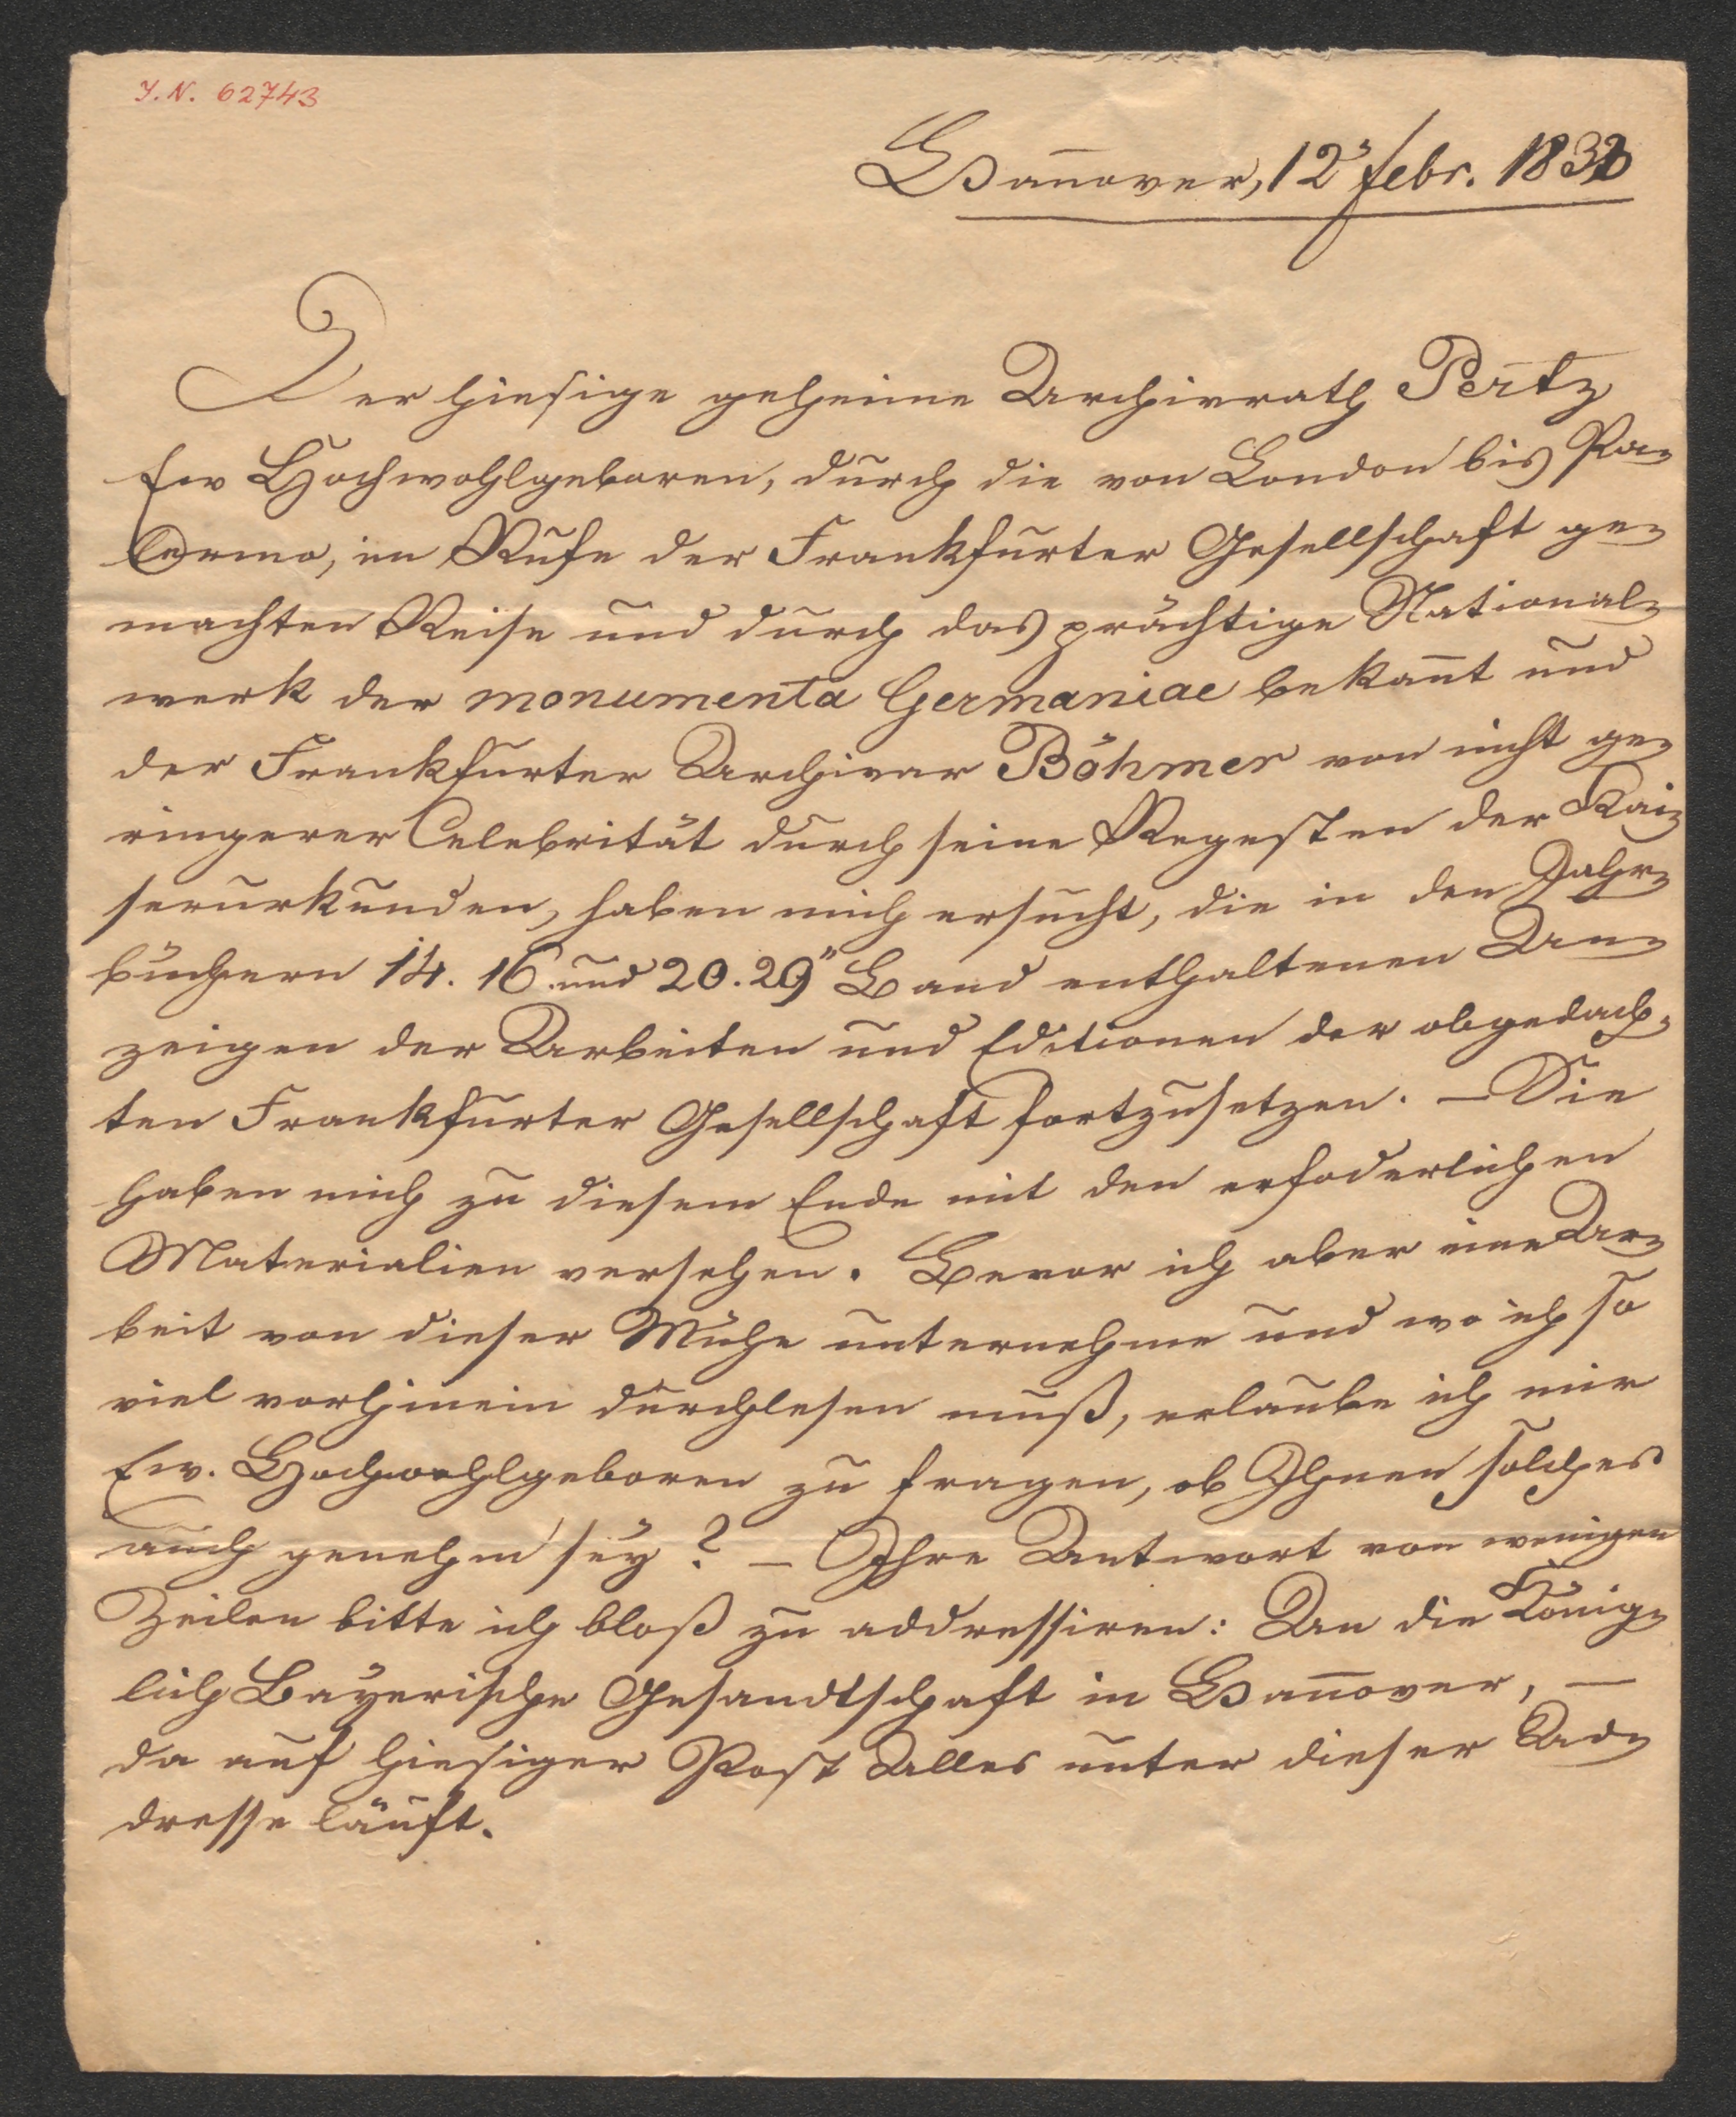 J. N. 62743
Hannover, 12 febr. 1833
Der hiesige geheime Archivrath Pertz
Ew Hochwohlgeboren, durch die von London bis Pa=
lermo, im Rufe der Frankfurter Gesellschaft ge=
machten Reise und durch das prächtige National=
werk der monumenta Germaniae bekan̄t und
der Frankfurter Archivar Böhmer von nicht ge=
ringerer Celebrität durch seine Regesten der Kai=
serurkunden, haben mich ersucht, die in den Jahr=
büchern 14. 16. und 20. 29" Band enthaltenen An=
zeigen der Arbeiten und Editionen der obgedach=
ten Frankfurter Gesellschaft fortzusetzen. – Sie
haben mich zu diesem Ende mit den erfoderlichen
Materialien versehen. Bevor ich aber eine Ar=
beit von dieser Mühe unternehme und wo ich so
viel vorhinein durchlesen muß, erlaube ich mir
Ew. Hochwohlgeboren zu fragen, ob Ihnen solches
auch genehm sey? – Ihre Antwort von wenigen
Zeilen bitte ich bloß zu addressiren: An die König=
lich Bayerische Gesandtschaft in Han̄over, –
da auf hiesiger Post Alles unter dieser Ad=
dresse läuft.